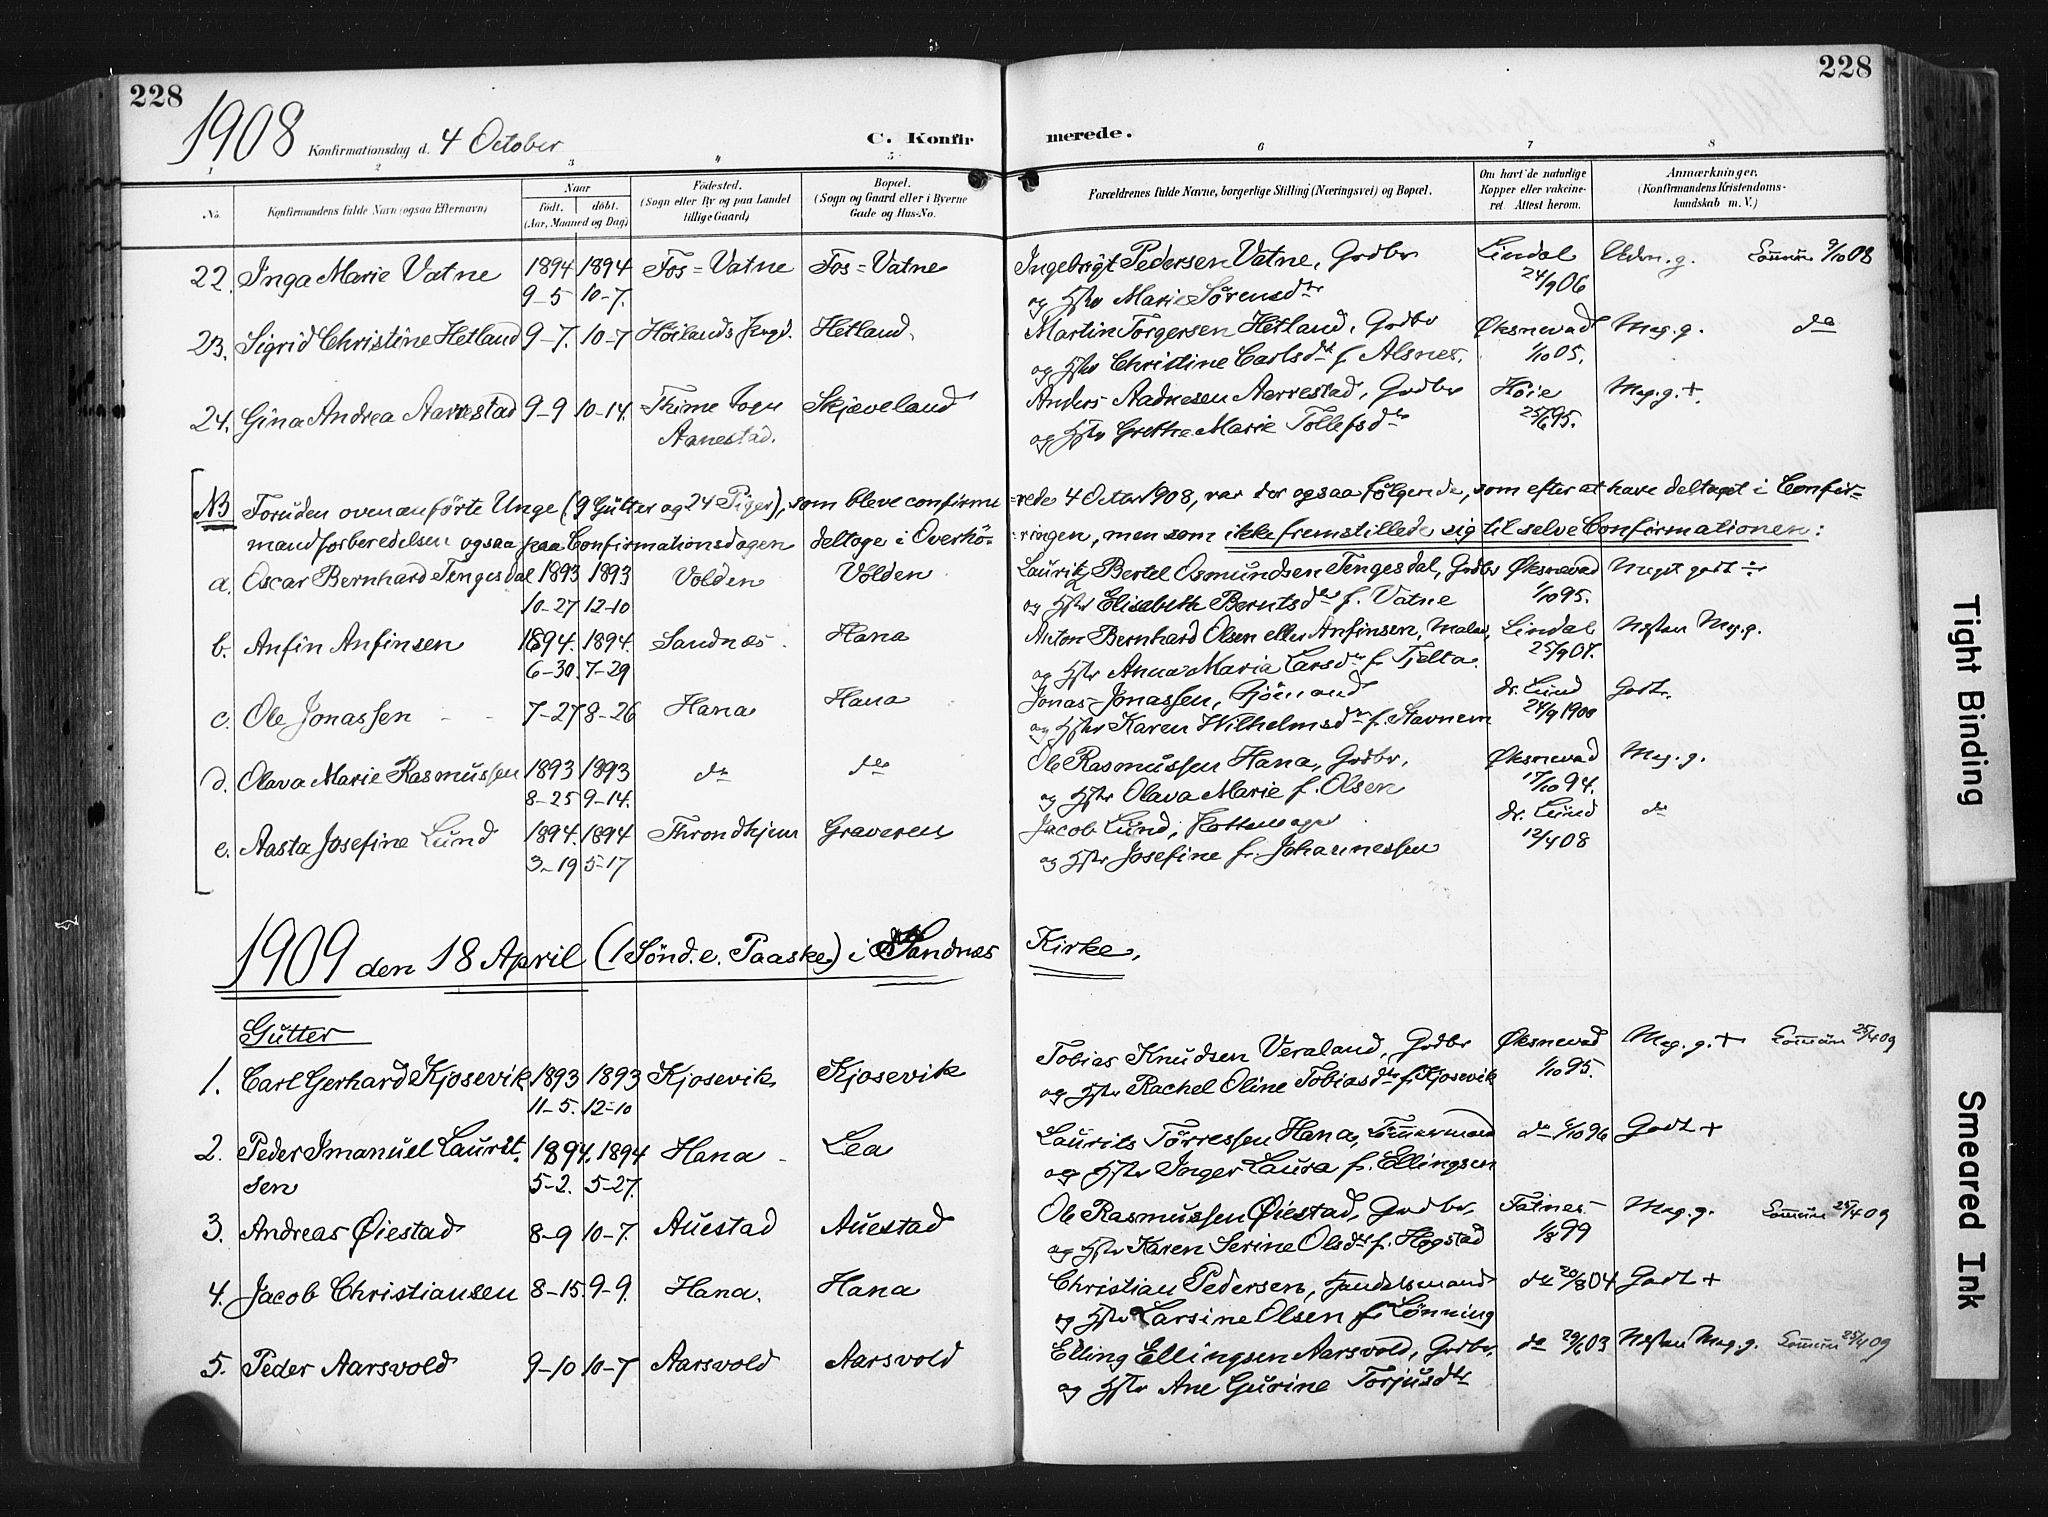 228
228
1908 Konfirmationsdag d. 4 October
C. Konfirmerede.
1 2 3 4 5 6 7 8
No. Konfirmandens fulde Navn (ogsaa Efternavn) Naar født. døbt. (Aar, Maaned og Dag) Fødested. (Sogn eller By og paa Landet tillige Gaard) Bopæl. (Sogn og Gaard eller i Byerne Gade og Hus-No. Forældrenes fulde Navne, borgerlige Stilling (Næringsvei) og Bopæl. Om havt de naturlige Kopper eller vakcineret. Attest herom. Anmærkninger. (Konfirmandens Kristendomskundskab m. V.)
22. Inga Marie Vatne 1894 1894 Fos=Vatne Fos=Vatne Ingebrigt Pedersen Vatne, Grdbr Lindal Udm. g. 9/10 08
9-5 10-7. og Hstr Marie Sørensdtr 24/9 06
23. Sigrid Christine Hetland 9-7. 10-7 Høilands Hetland. Martin Torgersen Hetland, Grdbr Øksnevad Meg. g. do
og Hstr Christine Carlsdtr f. Alsnes. 1/10 05.
24. Gina Andrea Aarrestad 9-9 10-14. Thime Sogn Skjæveland Anders Aadnesen Aarrestad, Grdbr Høie Meg. g. +.
Aarrestad. og Hstr Grethe Marie Tollefsdtr 25/6 95.
NB Foruden ovenanførte Unge (9 Gutter og 24 Piger), som bleve confirme=rede 4 Octbr 1908, var der ogsaa følgende, som efter at have deltaget i Confir=
mandforberedelsen ogsaa paa Confirmationsdagen deltoge i Overhø=ringen, men som ikke fremstillede sig til selve Confirmationen:
a. Oscar Bernhard Tengesdal 1893 1893 Volden Volden Lauritz Bertel Osmundsen Tengesdal, Grdbr Øksnevad Meget godt ÷
10-27 12-10 og Hstr Elisabeth Berntsdtr f. Vatne 1/10 95.
b. Anfin Anfinsen 1894. 1894. Sandnæs. Hana Anton Bernhard Olsen eller Anfinsen, Maler, Lindal Næsten Meg. g.
6-30. 7-29 og Hstr Anna Maria Larsdtr f. Tjelta. 25/9 07.
c. Ole Jonassen 7-27 8-26 Hana Hana Jonas Jonassen, Sjømand dr. Lund Godt.
og Hstr Karen Wilhelmsdtr f. Stavnem 24/9 1900
d. Olava Marie Rasmussen 1893 1893 do do Ole Rasmussen Hana, Grdbr, Øksnevad Meg. g.
8-25 9-14. og Hstr Olava Marie f. Olsen 17/10 94.
e. Aasta Josefine Lund 1894. 1894 Throndhjem Graveren Jacob Lund, Pottemager dr. Lund do
3-19 5-17 og Hstr Josefine f. Johannessen 12/4 08
1909 den 18 April (1 Sønd. e. Paaske) i Sandnæs Kirke.
Gutter
1. Carl Gerhard Kjosevik 1893 1893 Kjosevik Kjosevik Tobias Knudsen Veraland, Grdbr Øksnevad Meg. g. + 25/4 09
11-5. 12-10 og Hstr Rachel Oline Tobiasdtr f. Kjosevik 1/10 95.
2. Peder Imanuel Laurit. 1894. 1894 Hana Lea Laurits Tørressen Hana, Tømmermand do 6/10 96 Godt +
sen 5-2. 5-27. og Hstr Inger Laura f. Ellingsen
3. Andreas Øiestad 8-9 10-7. Auestad Auestad Ole Rasmussen Øiestad, Grdbr, Fatnes Meg. g. 25/4 09
og Hstr Karen Serine Olsdtr f. Hogstad 1/8 99
4. Jacob Christiansen 8-15. 9-9. Hana. Hana Christian Pedersen, Handelsmand do 20/8 04 Godt +
og Hstr Larsine Olsen f. Lønning
5. Peder Aarsvold 9-10 10-7 Aarsvold Aarsvold Elling Ellingsen Aarsvold, Grdbr. do 29/6 03 Næsten Meg. g. 25/4 09
og Hstr Ane Gurine Torjusdtr
Tight Binding
Smeared Ink